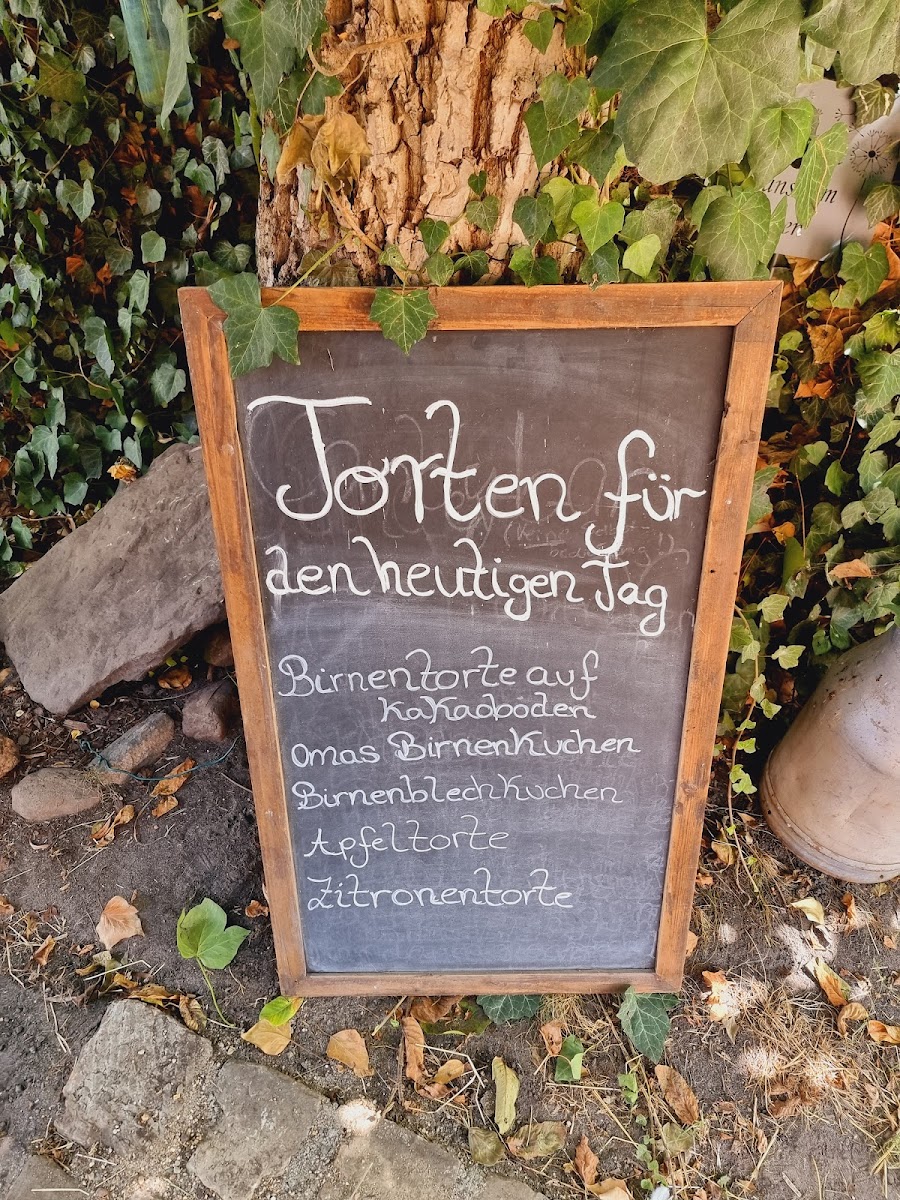 Torten für
den heutigen Tag
Birnentorte auf
Kakaoböden
Omas Birnenkuchen
Birnenblechkuchen
Apfeltorte
Zitronentorte